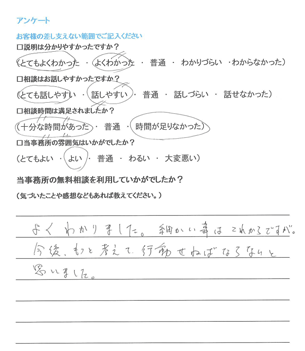 アンケート
お客様の差し支えない範囲でご記入ください
□説明は分かりやすかったですか？
(とてもよくわかった ・ よくわかった ・ 普通 ・ わかりづらい ・ わからなかった)
□相談はお話しやすかったですか？
(とても話しやすい ・ 話しやすい ・ 普通 ・ 話しづらい ・ 話せなかった)
□相談時間は満足されましたか？
(十分な時間があった ・ 普通 ・ 時間が足りなかった)
□当事務所の雰囲気はいかがでしたか？
(とてもよい ・ よい ・ 普通 ・ わるい ・ 大変悪い)
当事務所の無料相談を利用していかがでしたか？
(気づいたことや感想などもあれば教えてください。)
よくわかりました。細かい事はこれからですが。
今後、もっと考えて行動せねばならないと
思いました。